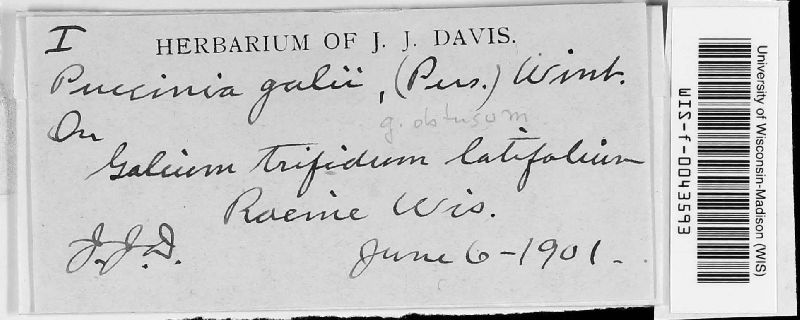 I
HERBARIUM OF J. J. DAVIS.
Puccinia galii, (Pers.) Wint.
On
g. obtusum
Galium trifidum latifolium
Racine Wis.
J.J.D.
June 6-1901.
University of Wisconsin-Madison (WIS)
WIS-f-0043593